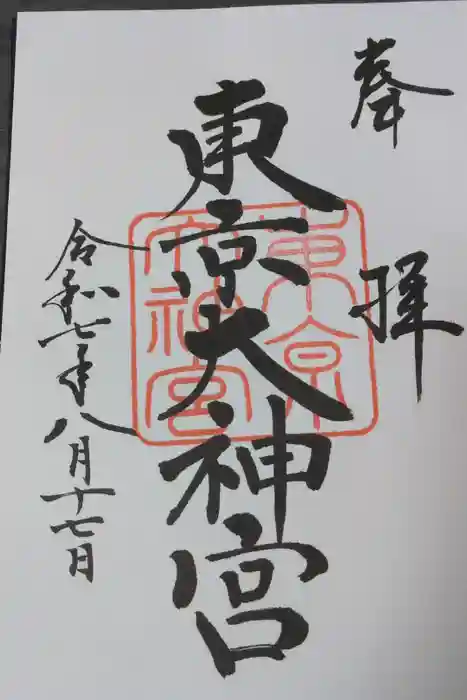 奉拝
東京大神宮
令和七年八月十七日
東京
大神宮